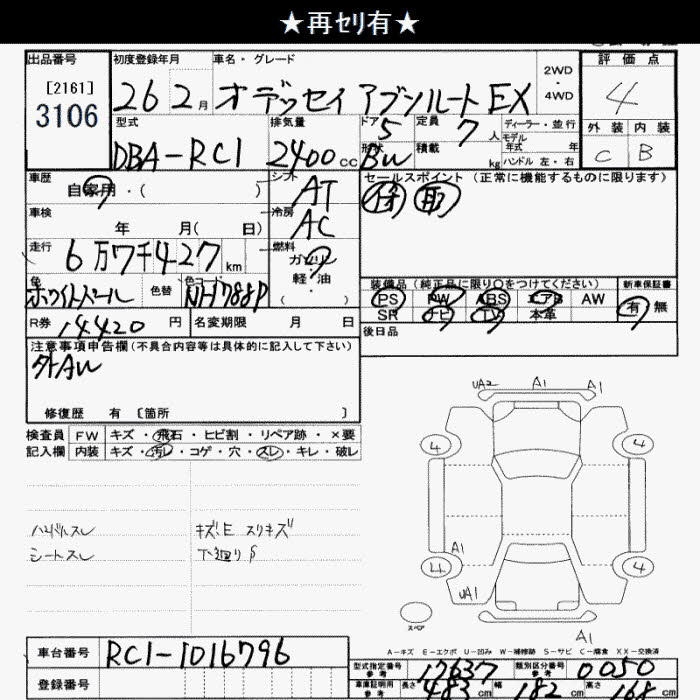 ★再ｾﾘ有★
出品番号 初度登録年月 車名・グレード 2WD・4WD 評価点
[2161]
3106
26 2月 オデッセイ アブソルート EX 4
型式 排気量 ドア 5 定員 7人 ディーラー・並行 外装 内装
モデル年式 年
DBA-RC1 2400cc 形状 BW 積載 kg ハンドル 左・右 C B
車歴 シフト セールスポイント(正常に機能するものに限ります)
自家用・( ) AT 保 取
車検 冷房
年 月( 日) AC
走行 燃料
6万7千427km ガソリン・軽油・( )
色 色替 色コード 装備品(純正品に限り○をつけてください) 新車保証書
ホワイトパール NH788P PS PW ABS エアB AW 有 無
R券 14420円 名変期限 月 日 SR ナビ TV 本革
後日品
注意事項申告欄(不具合内容等は具体的に記入して下さい)
外AW
修復歴 有 [箇所 ]
UA2 A1 A1
検査員 FW キズ・飛石・ヒビ割・リペア跡・×要
記入欄 内装 キズ・汚レ・コゲ・穴・スレ・キレ・破レ
4 4
ハンドルスレ キズE スリキズ
シートスレ 下廻りS
A1
4 4
UA1
スペア
A1
A-キズ E-エクボ U-凹み W-補修跡 S-サビ C-腐食 XX-交換済
車台番号 RC1-1016796
型式指定番号 参考 17637 類別区分番号 参考 0050
登録番号
車庫証明用 参考 長さ 483cm 幅 182cm 高さ 168cm